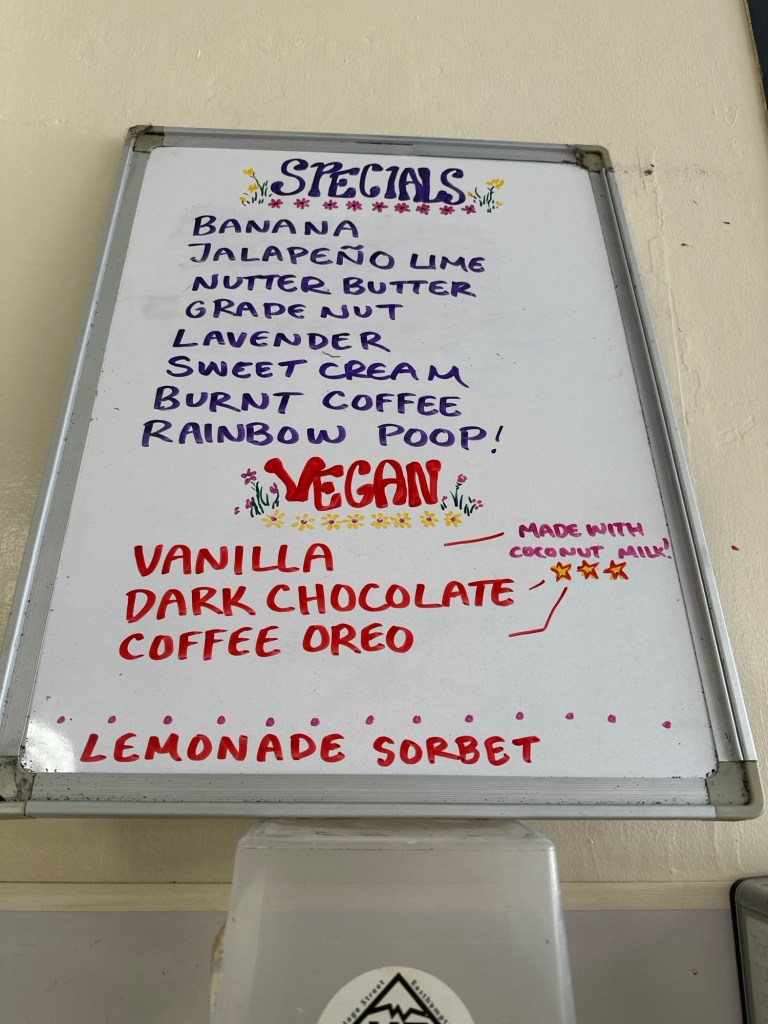 SPECIALS
BANANA
JALAPEÑO LIME
NUTTER BUTTER
GRAPE NUT
LAVENDER
SWEET CREAM
BURNT COFFEE
RAINBOW POOP!
VEGAN
MADE WITH
COCONUT MILK!
VANILLA
DARK CHOCOLATE
COFFEE OREO
LEMONADE SORBET